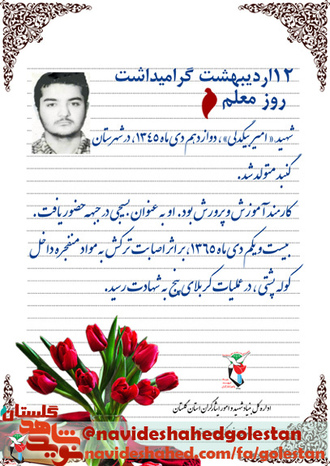 ۱۲اردیبهشت گرامیداشت
روز معلم
شهید «امیر بیکدلی»، دوازدهم دی ماه ۱۳۴۵، در شهرستان
گنبد متولد شد.
کارمند آموزش و پرورش بود. او به عنوان بسیجی در جبهه حضور یافت.
بیست و یکم دی ماه ۱۳۶۵، بر اثر اصابت ترکش به مواد منفجره داخل
کوله پشتی، در عملیات کربلای پنج به شهادت رسید.
اداره کل بنیاد شهید و امور ایثارگران استان گلستان
گلستان
نوید شاهد
@navideshahedgolestan
navideshahed.com/fa/golestan